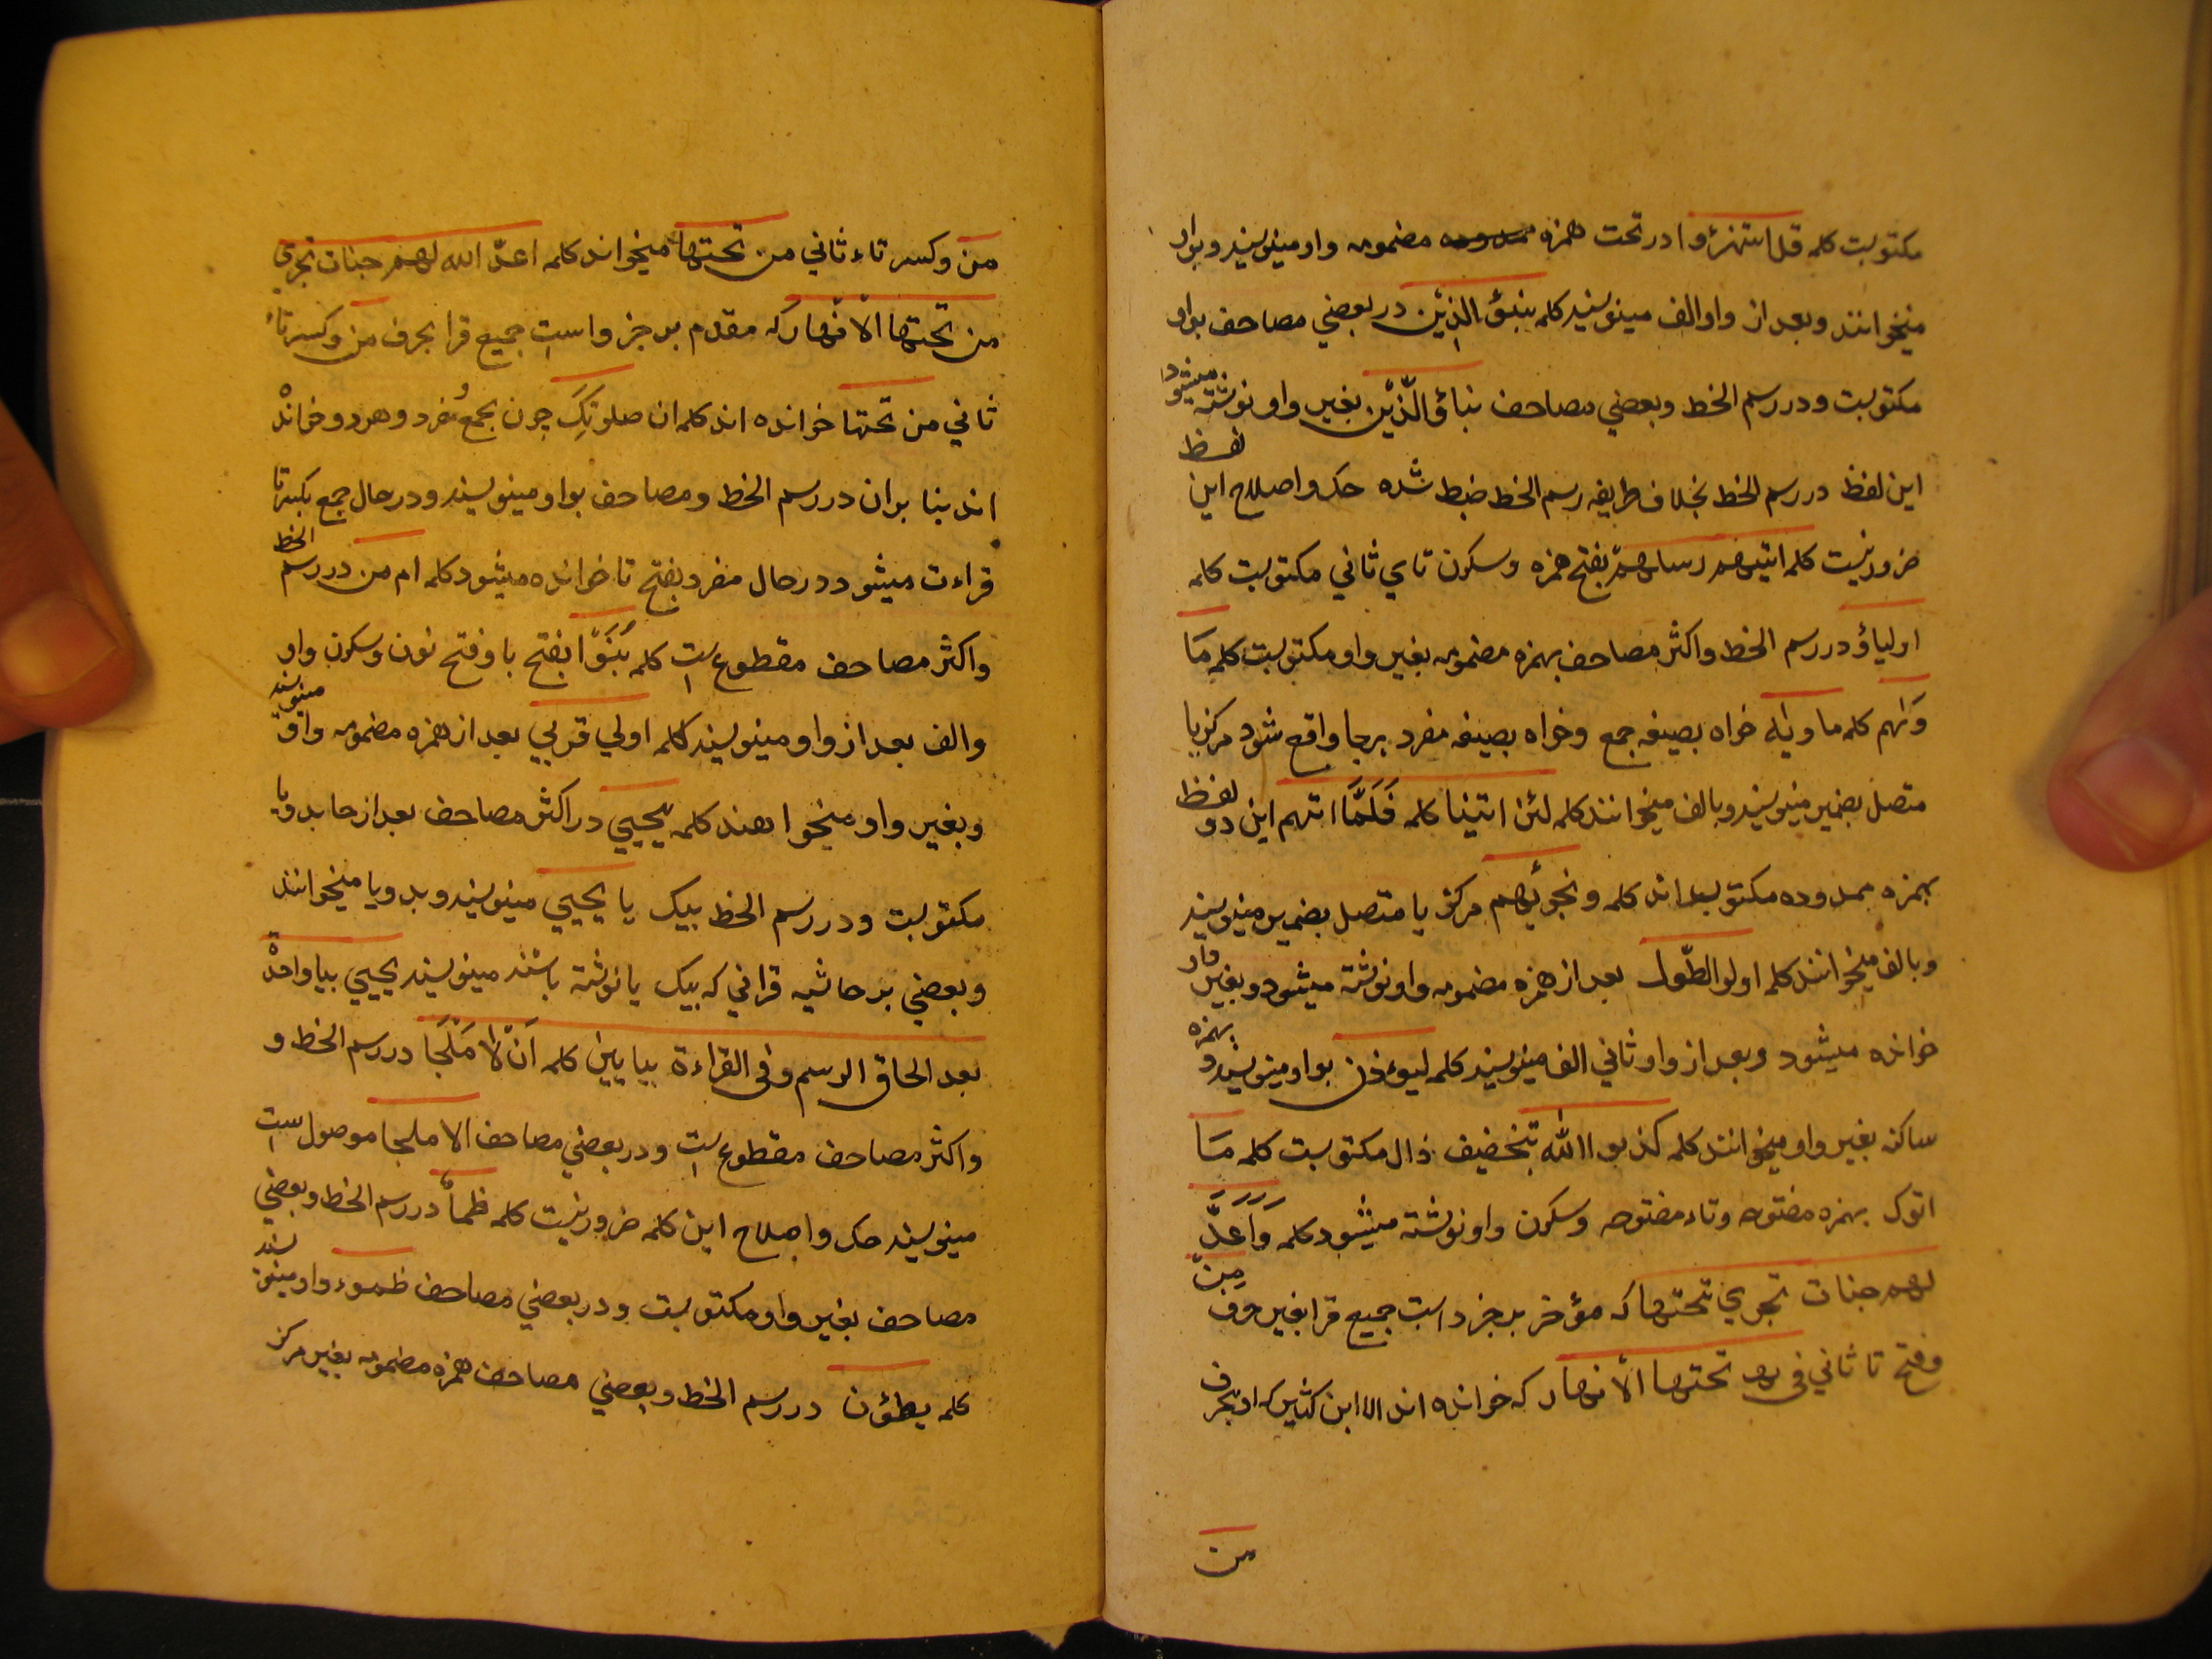 مکتوبست کلمه قل استهزؤا در تحت همزه ممدوده مضمومه واو مینویسند و بواو
میخوانند و بعد از واو الف مینویسند کلمه ینبؤ الذین در بعضی مصاحف بواو
مکتوبست و در رسم الخط و بعضی مصاحف نباؤ الّذین بغیر واو نوشته میشود
این لفظ در رسم الخط بخلاف طریقه رسم الخط ضبط شده حک و اصلاح این لفظ
ضرور نیست کلمه اتیهم رسلهم بفتح همزه و سکون تای ثانی مکتوبست کلمه
اولیاؤ در رسم الخط و اکثر مصاحف بهمزه مضمومه بغیر واو مکتوبست کلمه مَا
وَیٰهم کلمه ماویٰه خواه بصیغه جمع و خواه بصیغه مفرد هرجا واقع شود مرکز یا
متصل بضمیر مینویسند و بالف میخوانند کلمه لئن اتینا کلمه فَلَمَّا اتهم این دو لفظ
بهمزه ممدوده مکتوب اند کلمه ونجویٰهم مرکز یا متصل بضمیر مینویسند
و بالف میخوانند کلمه اولوا الطّول بعد از همزه مضمومه واو نوشته میشود و بغیر واو
خوانده میشود و بعد از واو ثانی الف مینویسند کلمه لیوءذن بواو مینویسند و بهمزه
ساکن بغیر واو میخوانند کلمه کذبوا اللّٰه بتخفیف ذال مکتوبست کلمه مَا
اتوک بهمزه مفتوحه و تاء مفتوحه و سکون واو نوشته میشود کلمه وَاَعَدَّ
لهم جنات تجری تحتها که مؤخر بر جزو است جمیع قرا بغیر حرف مِن
و فتح تا ثانی فی تحتها الأنهار که خوانده اند الا ابن کثیر که او بحرف
من
من و کسر تاء ثانی من تحتها میخواند کلمه اعدّ الله لهم جنات تجری
من تحتها الأنهار که مقدم بر جزو است جمیع قرا بحرف من و کسر تاء
ثانی من تحتها خوانده اند کلمه ان صلوتک چون بجمع و مفرد و هر دو خوانده
اند بنا بر ان در رسم الخط و مصاحف بواو مینویسند و در حال جمع بکسر تا
قراءت میشود و در حال مفرد بفتح تا خوانده میشود کلمه ام من در رسم الخط
و اکثر مصاحف مقطوعست کلمه بَنَوًا بفتح با و فتح نون و سکون واو
و الف بعد از واو مینویسند کلمه اولی قربی بعد از همزه مضمومه واو مینویسند
و بغیر واو میخوانند کلمه یحیی در اکثر مصاحف بعد از حا بدو یا
مکتوبست و در رسم الخط بیک یا یحیی مینویسند و بدو یا میخوانند
و بعضی بر حاشیه قرانی که بیک یا نوشته باشند مینویسند یحیی بیا واحدة
بعد الحاق الرسم و فی القراءة بیایین کلمه اَنْ لَا مَلْجَا در رسم الخط و
و اکثر مصاحف مقطوعست و در بعضی مصاحف الا ملجا موصول است
مینویسند حک و اصلاح این کلمه ضرور نیست کلمه ظمأ در رسم الخط و بعضی
مصاحف بغیر واو مکتوبست و در بعضی مصاحف ظموء واو مینویسند
کلمه یطؤن در رسم الخط و بعضی مصاحف همزه مضمومه بغیر مرکز